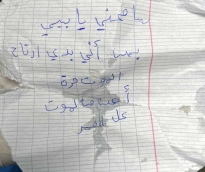 سامحني يا بيي
بس أني بدي ارتاح
الموت مرة
أهون من الموت
كل